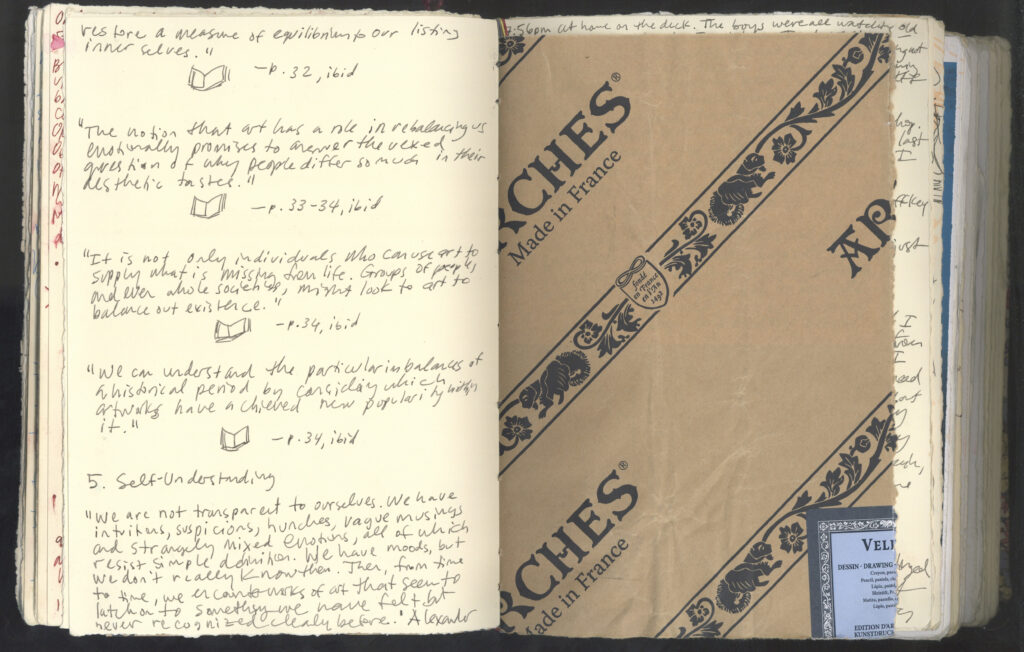 restore a measure of equilibrium to our listing
inner selves."
—p.32, ibid
"The notion that art has a role in rebalancing us
emotionally promises to answer the vexed
question of why people differ so much in their
aesthetic tastes."
—p.33-34, ibid
"It is not only individuals who can use art to
supply what is missing from life. Groups of people,
and even whole societies, might look to art to
balance out existence."
—p.34, ibid
"We can understand the particular imbalances of
a historical period by considering which
artworks have achieved new popularity within
it."
—p.34, ibid
5. Self-Understanding
"We are not transparent to ourselves. We have
intuitions, suspicions, hunches, vague musings
and strangely mixed emotions, all of which
resist simple definition. We have moods, but
we don't really know them. Then, from time
to time, we encounter works of art that seem to
latch on to something we have felt but
never recognized clearly before. Alexander
:56pm at home on the deck. The boys were all watching old
RCHES®
Made in France
AR
fondé
en France
en l'An
1492
RCHES®
Made in France
last
I
just
I
I
VELI
DESSIN · DRAWING
EDITION D'AR
KUNSTDRUC